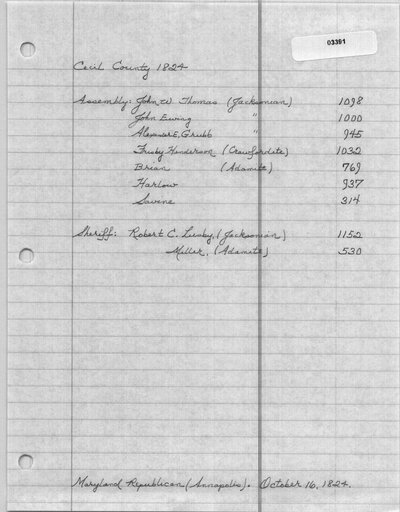 03391
Cecil County 1824
Assembly: John W Thomas (Jacksonian) 1098
John Ewing " 1000
Alexander E. Grubb " 945
Frisby Henderson (Crawfordite) 1032
Brian (Adamite) 769
Harlow 937
Savine 314
Sheriff: Robert C. Lusby, (Jacksonian) 1152
Miller, (Adamite) 530
Maryland Republican (Annapolis). October 16, 1824.